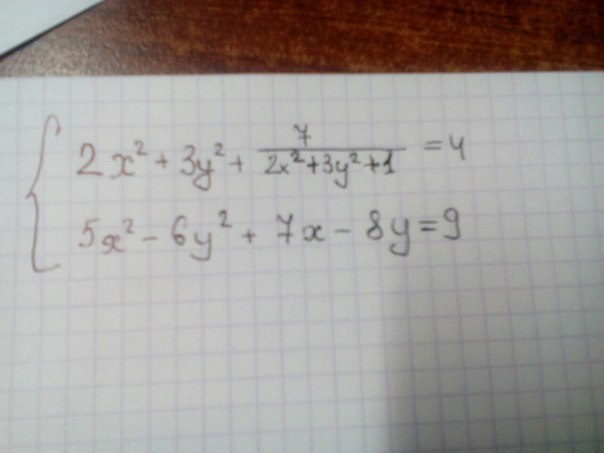 2x² + 3y² + 7/(2x²+3y²+1) = 4
5x² - 6y² + 7x - 8y = 9